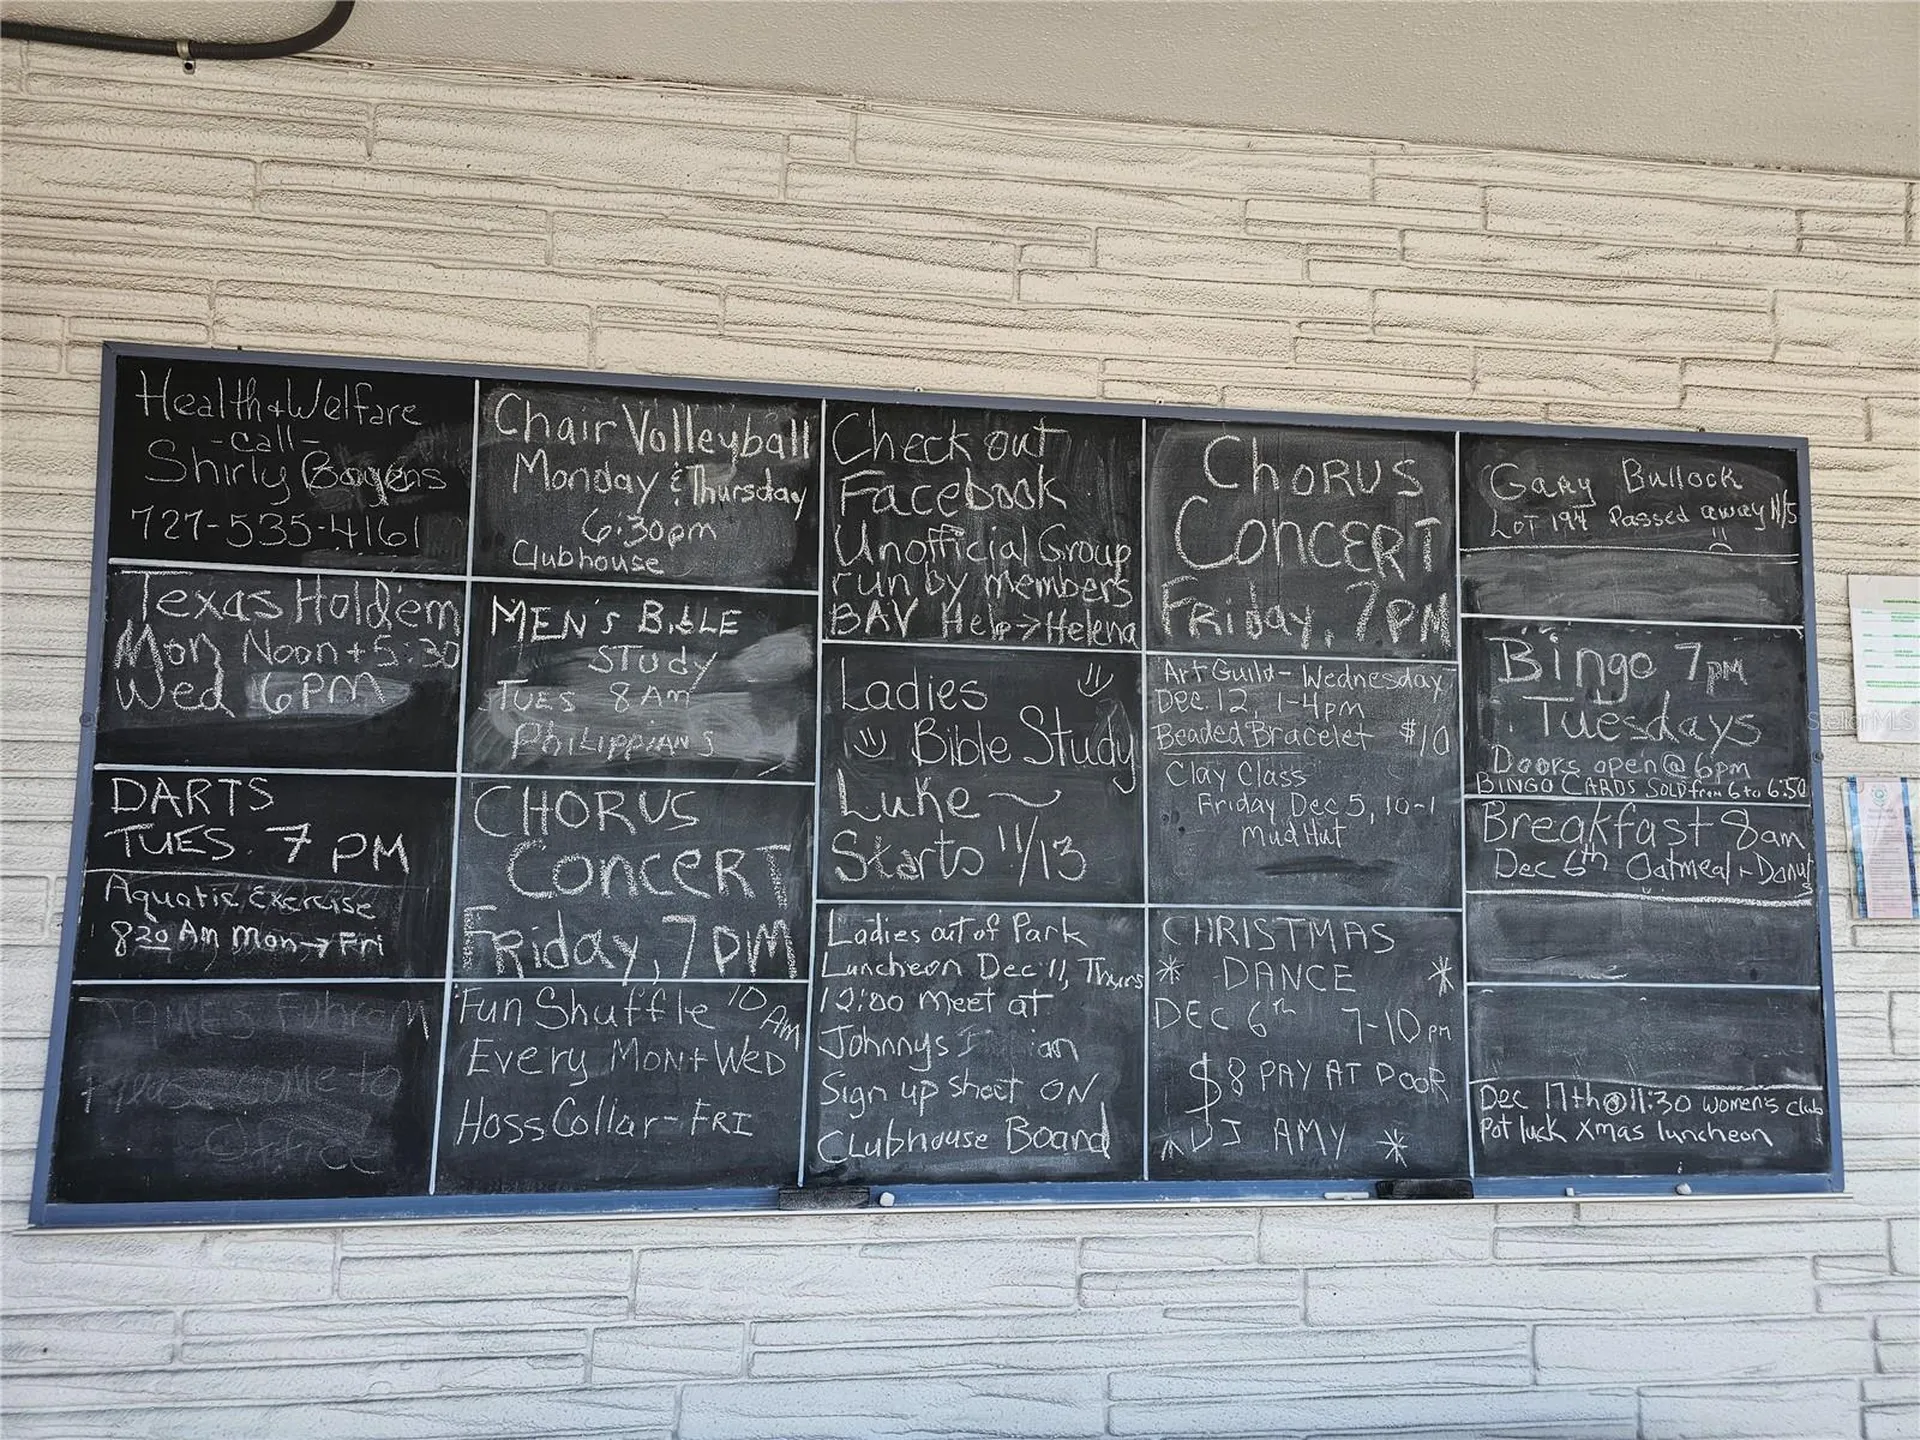 Health & Welfare
-call-
Shirly Bogens
727-535-4161
Texas Hold'em
Mon Noon + 5:30
Wed 6PM
DARTS
TUES. 7 PM
Aquatic Exercise
8:30 Am Mon → Fri
JAMES
to
Office
Chair Volleyball
Monday & Thursday
6:30pm
Clubhouse
MEN'S BIBLE
STUDY
TUES 8 AM
PHILIPPIANS
CHORUS
CONCERT
FRIDAY, 7 PM
Fun Shuffle 10 AM
Every MON + WED
Hoss Collar - FRI
Check out
Facebook
Unofficial Group
run by members
BAV Help → Helena
Ladies
Bible Study
Luke ~
Starts 11/13
Ladies out of Park
Luncheon Dec 11, Thurs
12:00 Meet at
Johnnys
Sign up sheet ON
Clubhouse Board
CHORUS
CONCERT
FRIDAY, 7 PM
Art Guild - Wednesday
Dec. 12, 1-4pm
Beaded Bracelet $10
Clay Class
Friday Dec 5, 10-1
Mud Hut
CHRISTMAS
* DANCE *
DEC 6th 7-10 PM
$8 PAY AT DOOR
* DJ AMY *
Gary Bullock
LOT 194 Passed away 11/5
Bingo 7pm
Tuesdays
Doors open @ 6pm
BINGO CARDS SOLD from 6 to 6:50
Breakfast 8am
Dec 6th Oatmeal + Donuts
Dec 17th @ 11:30 women's club
Pot luck Xmas luncheon
StellarMLS